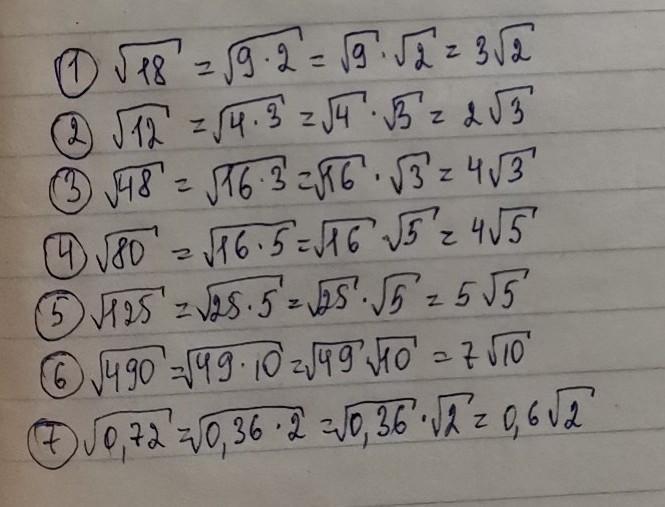 ① √18 = √9·2 = √9·√2 = 3√2
② √12 = √4·3 = √4·√3 = 2√3
③ √48 = √16·3 = √16·√3 = 4√3
④ √80 = √16·5 = √16 √5 = 4√5
⑤ √125 = √25·5 = √25·√5 = 5√5
⑥ √490 = √49·10 = √49 √10 = 7√10
⑦ √0,72 = √0,36·2 = √0,36·√2 = 0,6√2